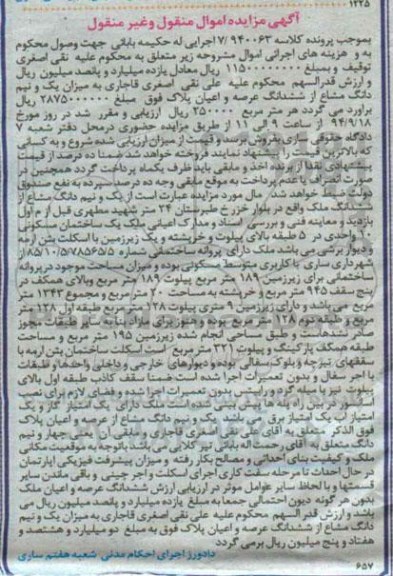 ۱۲۲۵
آگهی مزایده اموال منقول وغیر منقول
بموجب پرونده کلاسه ۹۴۰۰۶۳ /۷ اجرایی له حکیمه بابائی جهت وصول محکوم
به و هزینه های اجرائی اموال مشروحه زیر متعلق به محکوم علیه نقی اصغری
توقیف و بمبلغ ۱۱۵۰۰۰۰۰۰۰۰ ریال معادل یازده میلیارد و پانصد میلیون ریال
و ارزش قدرالسهم محکوم علیه علی نقی اصغری قاجاری به میزان یک و نیم
دانگ مشاع از ششدانگ عرصه و اعیان پلاک فوق مبلغ ۲۸۷۵۰۰۰۰۰۰ ریال
برآورد می گردد هر متر مربع ۲۵۰۰۰۰۰ ریال ارزیابی و مقرر شد در روز مورخ
۹۴/۹/۱۸ از ساعت ۹ الی ۱۱ از طریق مزایده حضوری درمحل دفتر شعبه ۷
دادگاه حقوقی ساری بفروش برسد و قیمت از میزان ارزیابی شده شروع و به کسانی
که بالاترین قیمت را پیشنهاد نمایند فروخته خواهد شد ضمنا ده درصد از قیمت
پیشنهادی نقدا از برنده اخذ و مابقی باید ظرف یکماه پرداخت گردد همچنین در
صورت انصراف یا عدم پرداخت به موقع مابقی وجه ده درصد سپرده به نفع صندوق
دولت ضبط خواهد شد. مال مورد مزایده عبارت است از یک و نیم دانگ مشاع از
ششدانگ ملک واقع در بلوار خزر خ طبرستان ۲۴ متر شهید مطهری قبل از م اول
بازدید و معاینه فنی و بررسی اسناد و مدارک اعیانی ملک یک ساختمان مسکونی
۱۰ واحدی در ۵ طبقه بالای پیلوت و خرپشته و یک زیرزمین با اسکلت بتن آرمه
و دیوار برشی می باشد ملک دارای پروانه ساختمانی شماره
شهرداری ساری با کاربری متوسط مسکونی بوده و میزان مساحت موجود در پروانه
ساختمانی برای زیرزمین ۱۸۹ متر مربع پیلوت ۱۸۹ متر مربع وبالای همکف در
پنج سقف ۹۴۵ متر مربع و خرپشته به مساحت ۲۰ متر مربع و مجموع ۱۳۴۳ متر
مربع می باشد و دارای زیرزمین ۹ متری پیلوت ۱۲۸ متر مربع طبقه اول ۱۲۸ متر
مربع و طبقه دوم ۱۲۸ متر مربع بوده و هنوز برای مازاد بنای سایر طبقات مجوز
صادر نشده است و طبق مساحی انجام شده زیرزمین ۱۹۵ متر مربع و مساحت
طبقه همکف پارکینگ و پیلوت ۲۳۱ متر مربع است اسکلت ساختمان بتن آرمه با
سقفهای تیرچه و بلوک سفالی بوده و دیوارهای خارجی و داخلی واحدها و طبقات
با آجر سفال و بدون تعمیرات اجرا شده است ضمنا سقف کاذب طبقه اول بالای
پیلوت نیز با میله گرد و رابیتس و بدون تعمیرات اجرا شده و فضای لازم برای نصب
آسانسور در بین پله ها پیش بینی شده است ملک دارای یک امتیاز گاز و یک
امتیاز آب یک امتیاز برق می باشد یک و نیم دانگ مشاع از عرصه و اعیان پلاک
فوق الذکر متعلق به آقای علی نقی اصغری قاجاری و مابقی آن یعنی چهار و نیم
دانگ متعلق به آقای رحمت اله بابائی نیز کلایی می باشد باتوجه به موقعیت مکانی
ملک و کیفیت بنای احداثی و مصالح بکار رفته و میزان پیشرفت فیزیکی آپارتمان
در حال احداث تا مرحله سفت کاری اجرای اسکلت و آجر چینی و باقی ماندن سایر
قسمتها و با لحاظ سایر عوامل موثر در ارزیابی ارزش ششدانگ عرصه و اعیان ملک
بدون هر گونه دیون احتمالی جمعا به مبلغ یازده میلیارد و پانصد میلیون ریال می
باشد و ارزش قدرالسهم محکوم علیه علی نقی اصغری قاجاری به میزان یک و نیم
دانگ مشاع از ششدانگ عرصه و اعیان پلاک فوق به مبلغ دو میلیارد و هشتصد و
هفتاد و پنج میلیون ریال برمی گردد
دادورز اجرای احکام مدنی شعبه هفتم ساری
۶۵۷